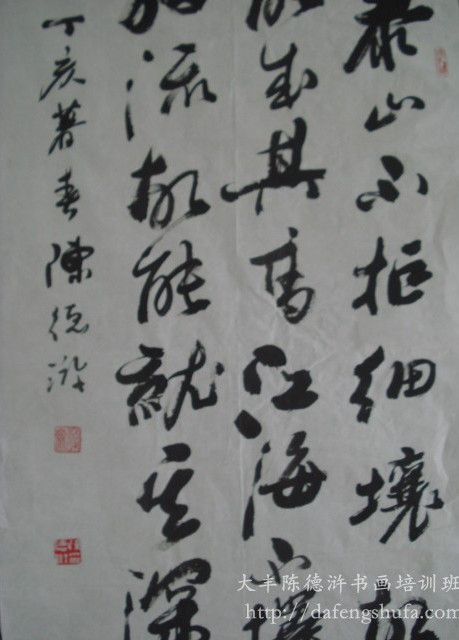 泰山不拒细壤故
能成其高江海不择
细流故能就其深
丁亥暮春陳德浒
大丰陈德浒书画培训班
http://dafengshufa.com/